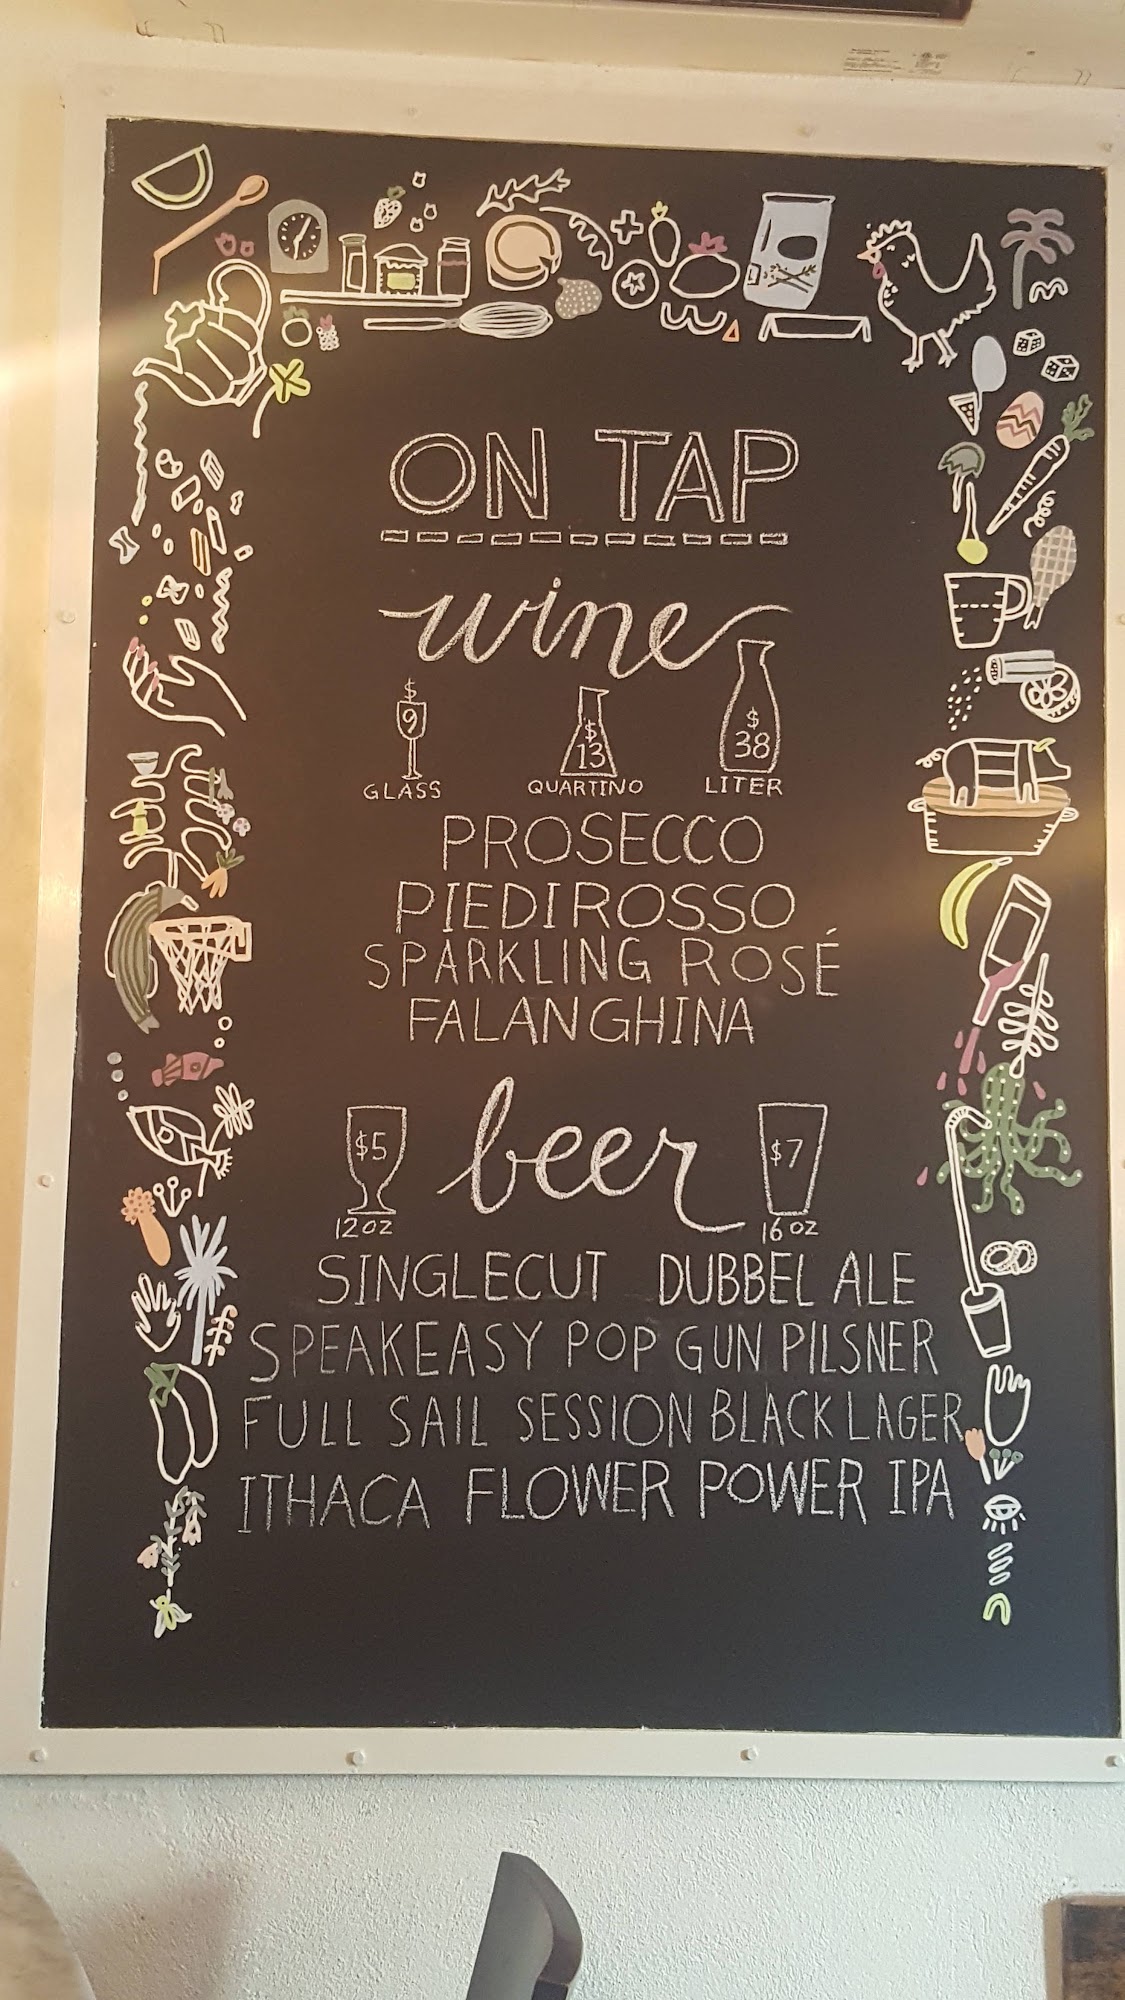 ON TAP
wine
$9 $13 $38
GLASS QUARTINO LITER
PROSECCO
PIEDIROSSO
SPARKLING ROSÉ
FALANGHINA
beer
$5 $7
12 OZ 16 OZ
SINGLECUT DUBBEL ALE
SPEAKEASY POP GUN PILSNER
FULL SAIL SESSION BLACK LAGER
ITHACA FLOWER POWER IPA